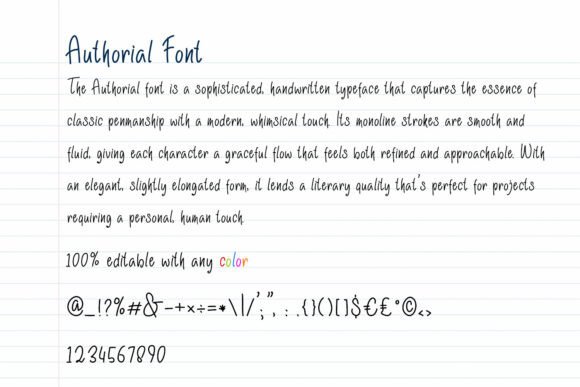 Authorial Font
The Authorial font is a sophisticated, handwritten typeface that captures the essence of
classic penmanship with a modern, whimsical touch. Its monoline strokes are smooth and
fluid, giving each character a graceful flow that feels both refined and approachable. With
an elegant, slightly elongated form, it lends a literary quality that's perfect for projects
requiring a personal, human touch.
100% editable with any color
@_!?%#&-+×÷=*\|/';",:.{}()[]$€£°©<>
1234567890